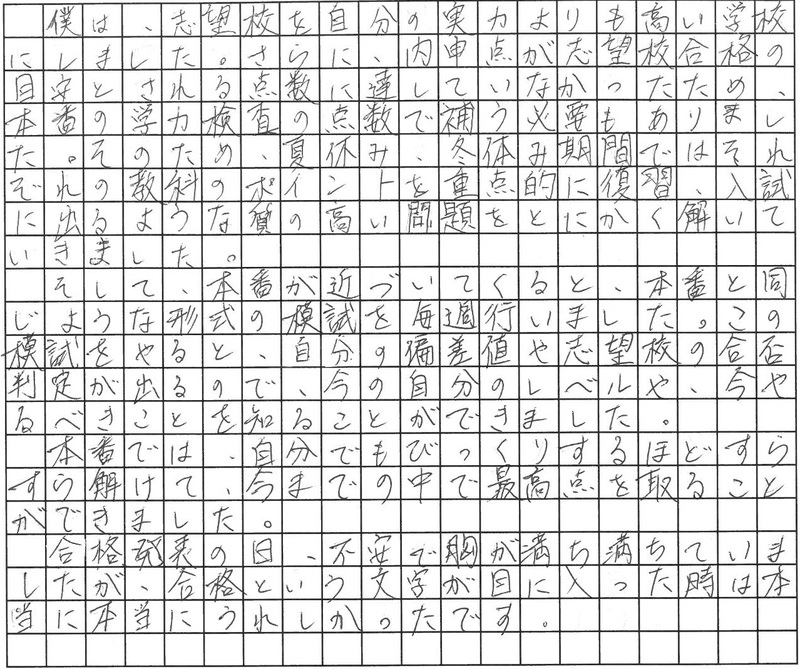 僕は、志望校を自分の実力よりも高い学校
にしました。さらに、内申点が志望校合格の
目安とされる点数に達していなかったため、
本番の学力検査の点数で補う必要もありまし
た。そのため、夏休み、冬休み期間ではそれ
ぞれの教科のポイントを重点的に復習、入試
に出るような質の高い問題をとにかく解いて
いきました。
そして、本番が近づいてくると、本番と同
じような形式の模試を毎週行いました。この
模試をやると、自分の偏差値や志望校の合否
判定が出るので、今の自分のレベルや、今や
るべきことを知ることができました。
本番では、自分でもびっくりするほどすら
すら解けて、今までの中で最高点を取ること
ができました。
合格発表の日、不安で胸が満ち満ちていま
したが、合格という文字が目に入った時は本
当に本当にうれしかったです。